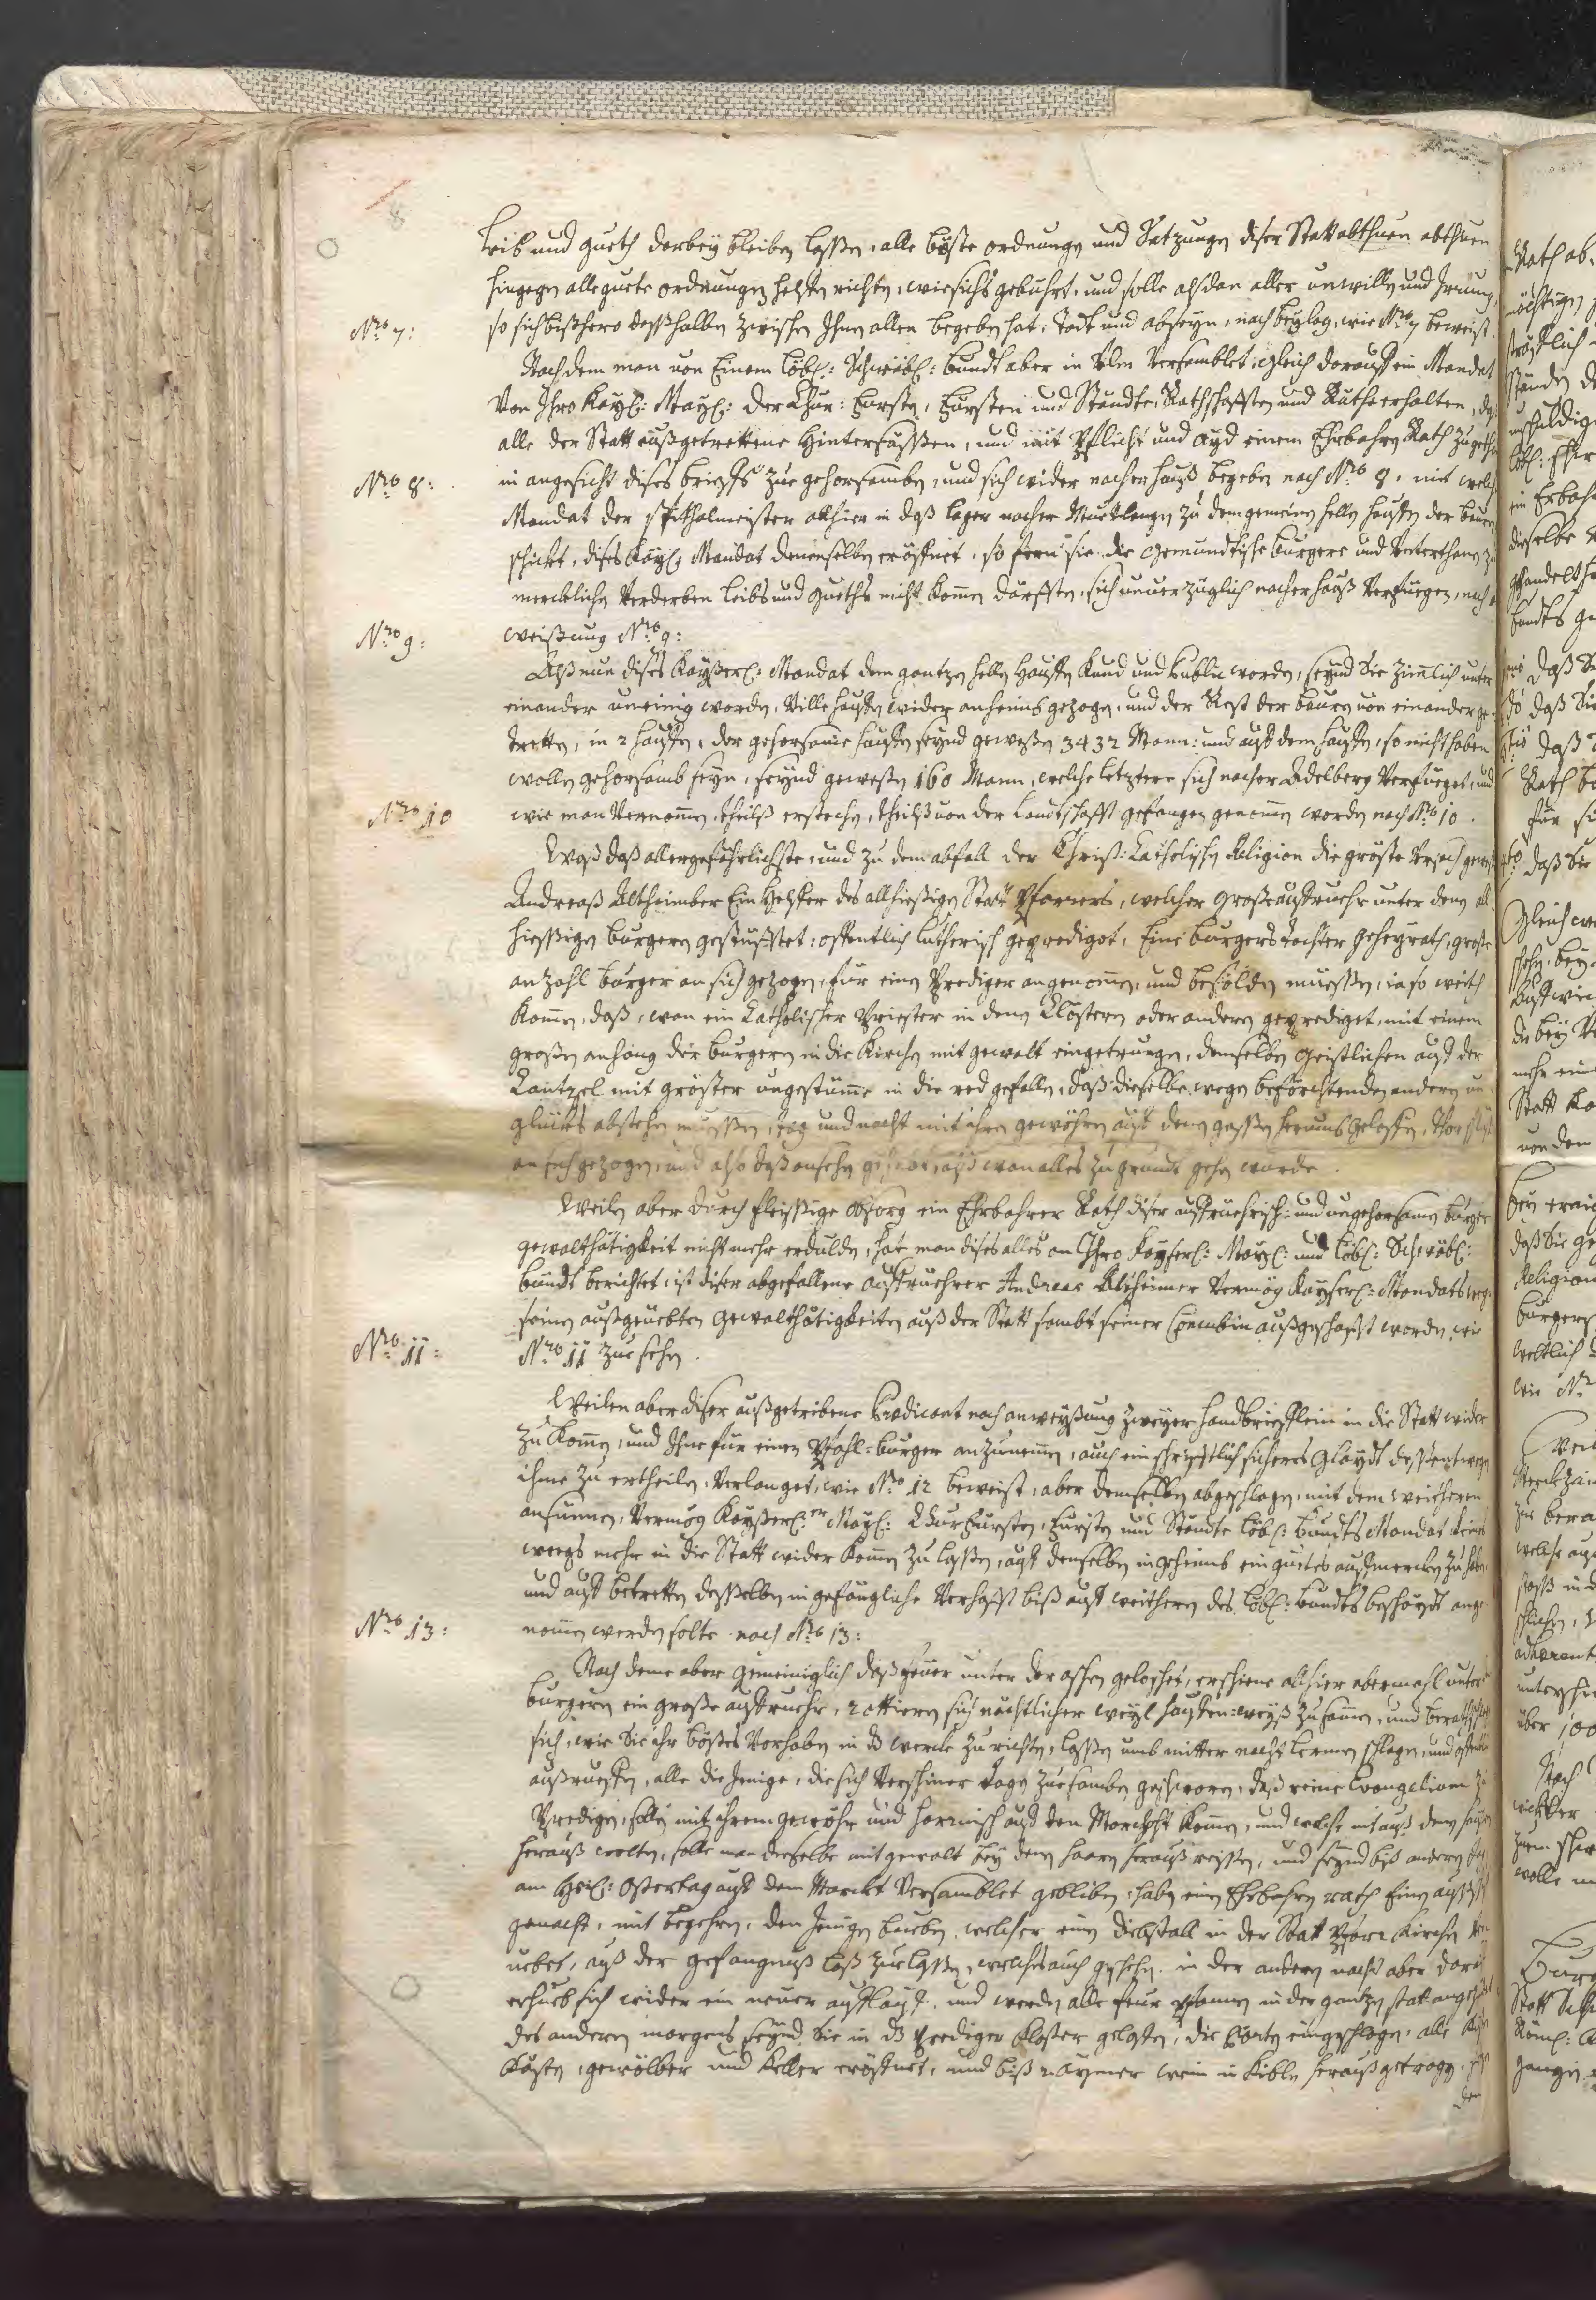 8
Leib und gueth darbey bleiben lassen, alle böste ordnungen und Satzungen diser Statt abthuen abthuen
hingegen alle guete ordnungen helffen richten, wie sichs gebührt, und solle alsdan aller unwillen und Irrung,
Nro 7:
so sich bißhero desßhalben zwischen Ihnen allen begeben hat, todt und abseyn, nach beylag, wie Nro 7 beweist.
Nach dem man von Einem löbl: Schwäbl: Bundt aber in Ulm versamblet, gleich darauff ein Mandat
Von Ihro Kayl: Mayl: Der Chur: Fursten, Fürsten und Ständte, Rathschafften und Räthe erhalten, daß
alle der Statt außgetrettene Hintersässen, und mit Pflicht und ayd einem Ehrbahren Rath zugethan
Nro 8:
in angesicht dises brieffs zue gehorsamben, und sich wider nacher hauß begeben nach Nro 8. mit welch
Mandat der Spithalmeister allhier in daß lager nacher zu dem gemeinen hellen hauffen der bauren
schickt, dises Kayl: Mandat denenselben eröffnet, so fern sie die Gemündtische burgere und Unterthanen zu
mercklichen Verderben leibs und gueths nicht kommen darfften, sich unverzüglich nacher hauß verfüegen, nach
Nro 9:
weißung Nro 9:
Alß nun dises Kayßerl: Mandat dem gantzen hellen hauffen kund und Public worden, seynd Sie zimlich unter
einander uneinig worden, Ville hauffen wider anheimbs gezogen, und der Rest der bauren von einander ge-
tretten, in 2 hauffen, der gehorsame hauffen seynd gewesen 3432 Mann: und auß dem hauffen, so nicht haben
wollen gehorsamb seyn, seynd gewesen 160 Mann, welche letztere sich nacher Adelberg verfüeget, und
Nro 10
wie man vernommen, theilß erstochen, theilß von der Landtschafft gefangen genommen worden nach Nro 10.
Waß daß allergefährlichste, und zu dem abfall der Christ: Catholischen Religion die gröste Ursach gewest
Andreaß Altheimber Ein Helffer des allhießigen Statt Pfarrers, welcher große auffruehr unter denen all-
hiessigen burgern gestüfftet, offentlich lutherisch geprediget, Eine burgers tochter geheyrath, große
anzahl burger an sich gezogen, für einen Prediger angenommen, und besölden muessen, ia so weith
kommen, daß, wan ein Catholischer Priester in denen Clöstern oder anderen geprediget, mit einem
großen anhang der burgern in die Kirchen mit gewalt eingetrungen, demselben geistlichen auff der
Cantzel mit gröster ungestümme in die red gefallen, daß dieselbe wegen beförchtenden anderen un-
glückes abstehen müessen, tag und nacht mit ihren gewöhren auff denen gassen herumb geloffen,
an sich gezogen, und also daß ansehen gehabt, als wan alles zu grundt gehen wurde.
Weilen aber durch fleissige obsorg ein Ehrbahrer Rath diser auffruehrisch: und ungehorsamen burger
gewalthätigkeit nicht mehr erdulden, hat man dises alles an Ihro Kayserl: Mayl: und löbl: Schwäbl:
bundt berichtet, ist diser abgefallene auffruehrer Andreas Altheimer Vermög Kayserl: Mandats wegen
seinen außgeüebten gewalthätigkeiten auß der Statt sambt seiner außgeschafft worden, wie
Nro 11:
Nro 11 zue sehen.
Weilen aber diser außgetribene Predicant nach anweyßung zweyer handbriefflein in die Statt wider
zu kommen, und Ihne für einen Pfahl-burger anzunemmen, auch ein schrifftlich sicheres Glaydt dessentwegen
ihme zu ertheilen, verlanget, wie Nro 12 beweist, aber demselben abgeschlagen, mit dem weitheren
ansinnen, Vermög Kayßerl:er Mayl: Churfürsten, Fürsten und Stände löbl: bundts Mandat keines
weegs mehr in die Statt wider kommen zu lassen, auff denselben in geheimb ein guetes auffmercken zu haben
und auff betretten desselben in gefängliche verhafft biß auff weitheren des löbl: bundts beschaydt ange-
Nro 13:
nommen werden solte. nach Nro 13:
Nach deme aber gemeiniglich daß feuer unter der aschen geloschet, erschiene allhier abermahl unter
burgern ein große auffruehr, rottieren sich nächtlicher weyl hauffen: weyß zusamen, und berathschlagt
sich, wie Sie ihr bößes Vorhaben in dß werck zu richten, lassen umb mitter nacht lermen schlagen, und
außrueffen, alle die Jenige, die sich verschiner tagen zue samben geschworen, daß reine Evangelium zu
Predigen, sollen mit ihrem gewöhr und harnisch auff den Marckht kommen, und welche nit auß dem hauß
herauß wolten, solle man dieselbe mit gewalt bey denen haaren herauß reissen, und seynd biß anderen tag
am Heil: Ostertag auff dem Marckt versamblet gebliben, haben einen Ehrbahren rath
gemacht, mit begehren, den Jenigen bueben, welcher einen diebstall in der Statt Pfarr Kirchen
uebet, auß der gefangnuß loß zue lassen, welches auch geschehen. in der anderen nacht aber darauf
erhueb sich wider ein neuer aufflauff, und werden alle feur pfannen in der gantzen statt angezündt
des anderen morgens seynd Sie in dß Prediger Kloster geloffen, die Porten eingeschlagen, alle
Kästen, gewölber und Keller eröffnet, und biß 2 aymer wein in kiblen herauß getragen.
den